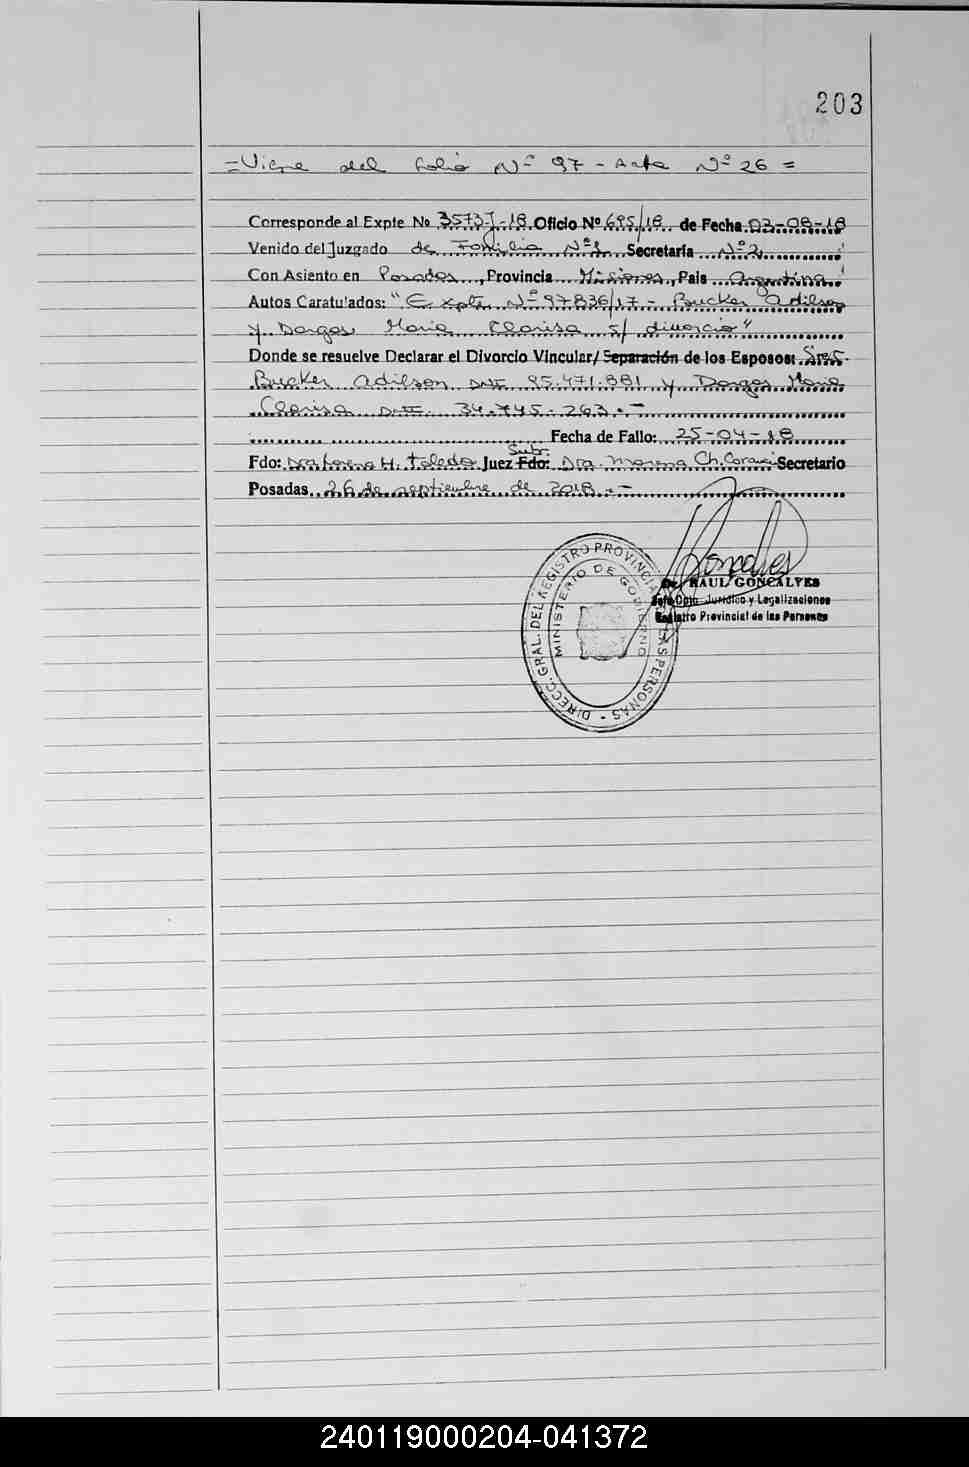 203
= Viene del folio Nº 97 - Acta Nº 26 =
Corresponde al Expte No 3573-J-18 Oficio Nº 695/18 de Fecha 02-08-18
Venido del Juzgado de Familia Nº 1 Secretaría Nº 2
Con Asiento en Posadas, Provincia Misiones, Pais Argentina
Autos Caratulados: "Expte Nº 97836/17 - Bucker Adilson
y Dargas Maria Clarisa s/ divorcio"
Donde se resuelve Declarar el Divorcio Vincular/ Separación de los Esposos: Sres.
Bucker Adilson DNI 95.471.881 y Dargas Maria
Clarisa DNI. 34.745.263.-
Fecha de Fallo: 25-04-18
Fdo: Dra Lorena H. Toledo Juez Subr. Fdo: Dra. Morena Ch. Secretario
Posadas, 26 de septiembre de 2018.-
DIRECC. GRAL. DEL REGISTRO PROVINCIAL DE LAS PERSONAS -
MINISTERIO DE GOBIERNO
Dr. RAUL GONCALVES
Jefe Dpto. Jurídico y Legalizaciones
Registro Provincial de las Personas
240119000204-041372